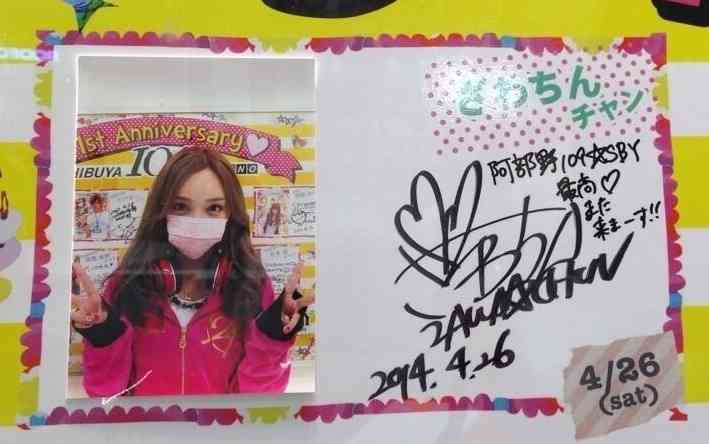 1st Anniversary
HIBUYA 10
NO
ざわちん
チャン
阿部野109☆SBY
最高♡
また
来まーす!!
ZAWACHIN
2014.4.26
4/26
(sat)